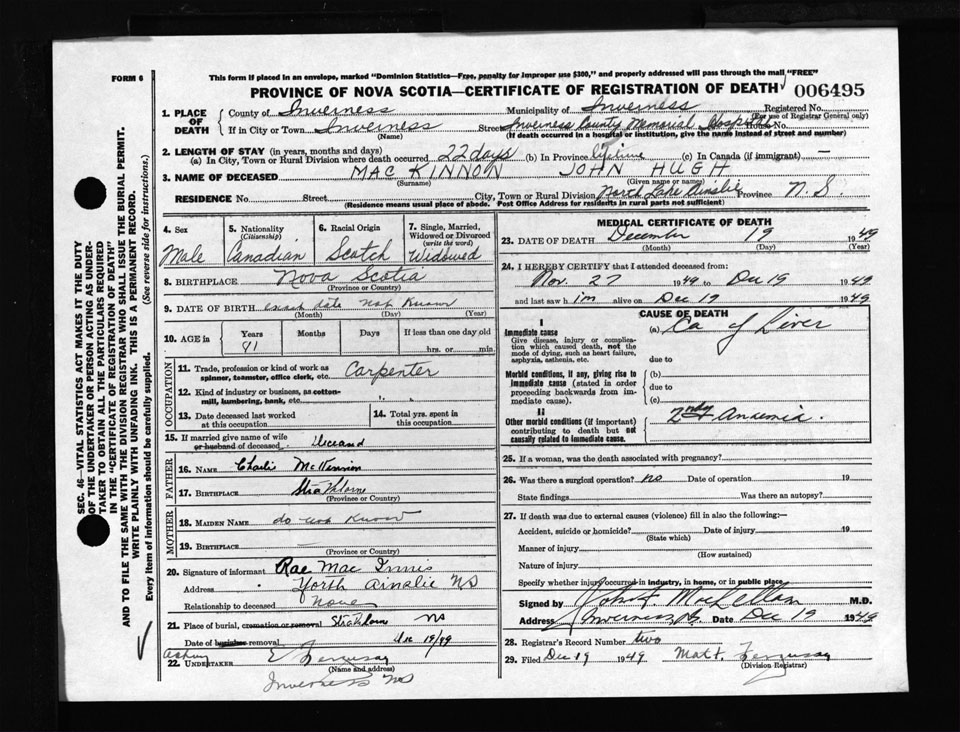 FORM 6
This form if placed in an envelope, marked "Dominion Statistics—Free, penalty for improper use $300," and properly addressed will pass through the mail "FREE"
PROVINCE OF NOVA SCOTIA—CERTIFICATE OF REGISTRATION OF DEATH
006495
1. PLACE OF DEATH
County of Inverness Municipality of Inverness Registered No.
(For use of Registrar General only)
If in City or Town Inverness Street Inverness County Memorial Hospital House No.
(Name) (If death occurred in a hospital or institution, give the name instead of street and number)
2. LENGTH OF STAY (in years, months and days)
(a) In City, Town or Rural Division where death occurred 22 days (b) In Province lifetime (c) In Canada (if immigrant) —
3. NAME OF DECEASED MAC KINNON JOHN HUGH
(Surname) (Given name or names)
RESIDENCE No. Street City, Town or Rural Division North Lake Ainslie Province N.S.
(Residence means usual place of abode. Post Office Address for residents in rural parts not sufficient)
4. Sex Male
5. Nationality (Citizenship) Canadian
6. Racial Origin Scotch
7. Single, Married, Widowed or Divorced (write the word) Widowed
8. BIRTHPLACE Nova Scotia
(Province or Country)
9. DATE OF BIRTH exact date not known
(Month) (Day) (Year)
10. AGE in Years Months Days If less than one day old
hrs. or min.
OCCUPATION
11. Trade, profession or kind of work as spinner, teamster, office clerk, etc. Carpenter
12. Kind of industry or business, as cotton-mill, lumbering, bank, etc. " "
13. Date deceased last worked at this occupation
14. Total yrs. spent in this occupation
15. If married give name of wife or husband of deceased
FATHER
16. NAME Charlie McKinnon
17. BIRTHPLACE Strathlorne
(Province or Country)
MOTHER
18. MAIDEN NAME do not know
19. BIRTHPLACE —
(Province or Country)
20. Signature of informant Rae Mac Innis
Address North Ainslie NS
Relationship to deceased None
21. Place of burial, cremation or removal Strathlorne NS
Date of burial or removal Dec 19/49
22. UNDERTAKER E Ferguson
(Name and address)
Inverness NS
MEDICAL CERTIFICATE OF DEATH
23. DATE OF DEATH December 19 1949
(Month) (Day) (Year)
24. I HEREBY CERTIFY that I attended deceased from:
Nov. 27 1949 to Dec 19 1949
and last saw h im alive on Dec 19 1949
CAUSE OF DEATH
I
Immediate cause (a) Ca of Liver
Give disease, injury or complication which caused death, not the mode of dying, such as heart failure, asphyxia, asthenia, etc.
due to
Morbid conditions, if any, giving rise to immediate cause (stated in order proceeding backwards from immediate cause). (b)
due to
(c)
II
Other morbid conditions (if important) contributing to death but not causally related to immediate cause. 2ndy Anaemia.
25. If a woman, was the death associated with pregnancy?
26. Was there a surgical operation? no Date of operation 19
State findings Was there an autopsy?
27. If death was due to external causes (violence) fill in also the following:—
Accident, suicide or homicide? Date of injury 19
(State which)
Manner of injury
(How sustained)
Nature of injury
Specify whether injury occurred in industry, in home, or in public place
Signed by John F. MacLellan M.D.
Address Inverness Date Dec 19 1949
28. Registrar's Record Number two
29. Filed Dec 19 1949 Mat F. Ferguson
(Division Registrar)
SEC. 46—VITAL STATISTICS ACT MAKES IT THE DUTY
OF THE UNDERTAKER OR PERSON ACTING AS UNDER-
TAKER TO OBTAIN ALL THE PARTICULARS REQUIRED
IN THE "CERTIFICATE OF REGISTRATION OF DEATH"
AND TO FILE THE SAME WITH THE DIVISION REGISTRAR WHO SHALL ISSUE THE BURIAL PERMIT.
WRITE PLAINLY WITH UNFADING INK. THIS IS A PERMANENT RECORD.
Every item of information should be carefully supplied. (See reverse side for instructions.)